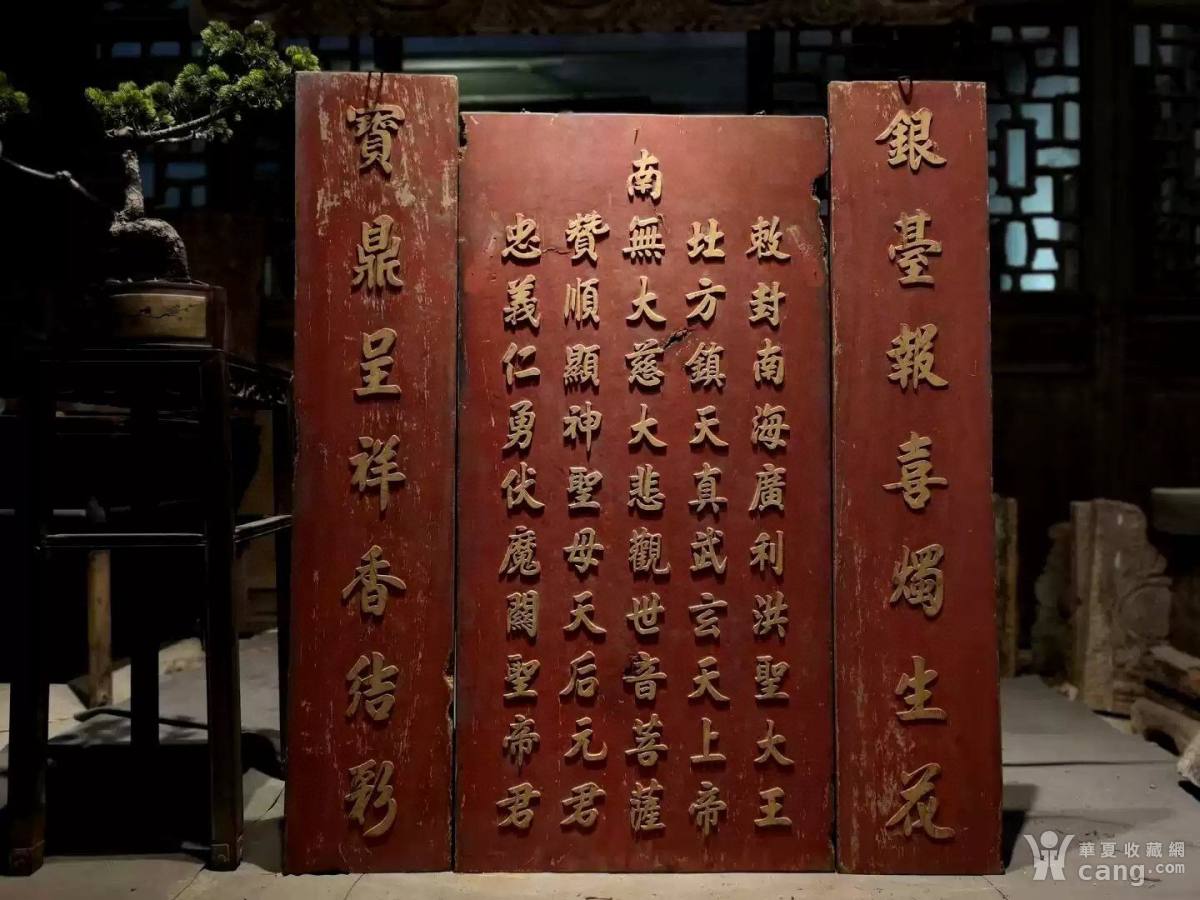 銀臺報喜燭生花
敕封南海廣利洪聖大王
北方鎮天真武玄天上帝
南無大慈大悲觀世音菩薩
贊順顯神聖母天后元君
忠義仁勇伏魔關聖帝君
寶鼎呈祥香結彩
華夏收藏網
cang.com